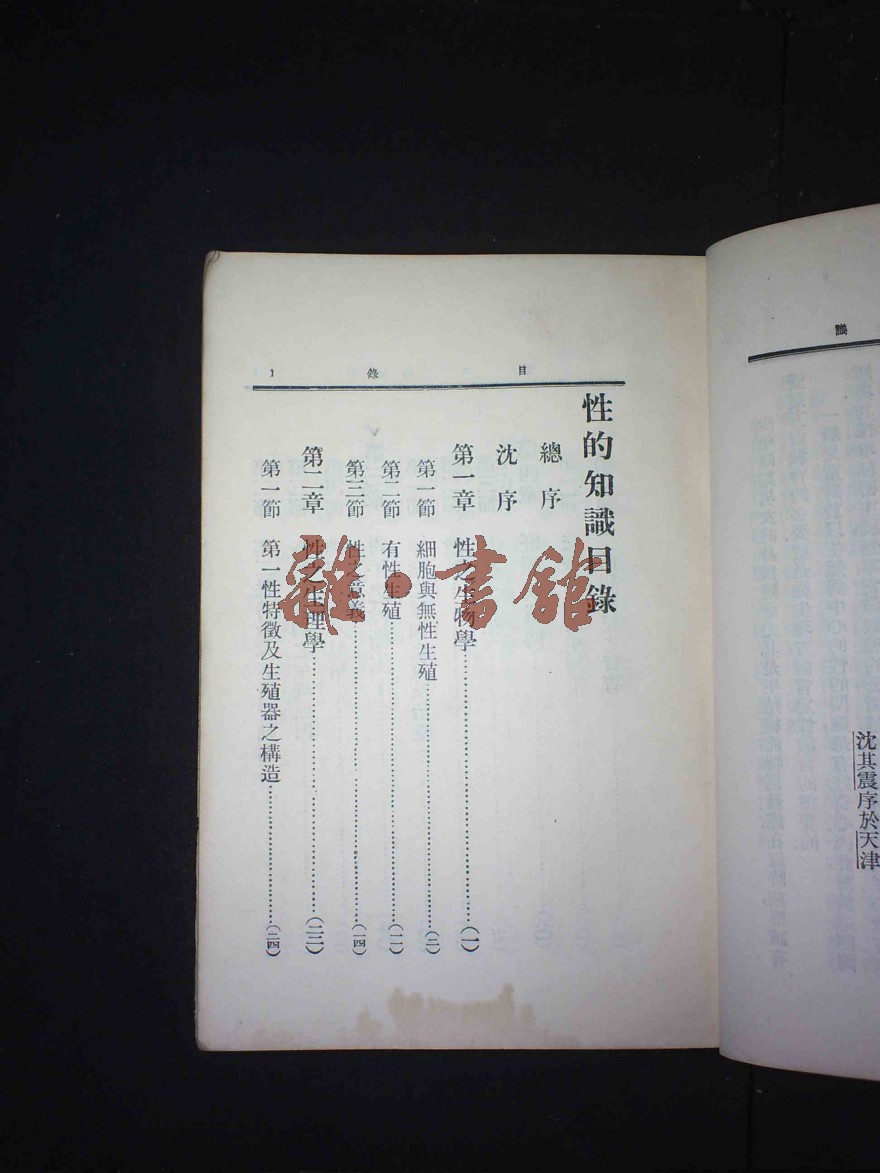 目錄 1
性的知識目錄
總序
沈序
第一章 性之生物學……(一)
第一節 細胞與無性生殖……(二)
第二節 有性生殖……(一一)
第三節 性之意義……(一四)
第二章 性之生理學……(二三)
第一節 第一性特徵及生殖器之構造……(二四)
識
沈其震序於天津
雜·書館